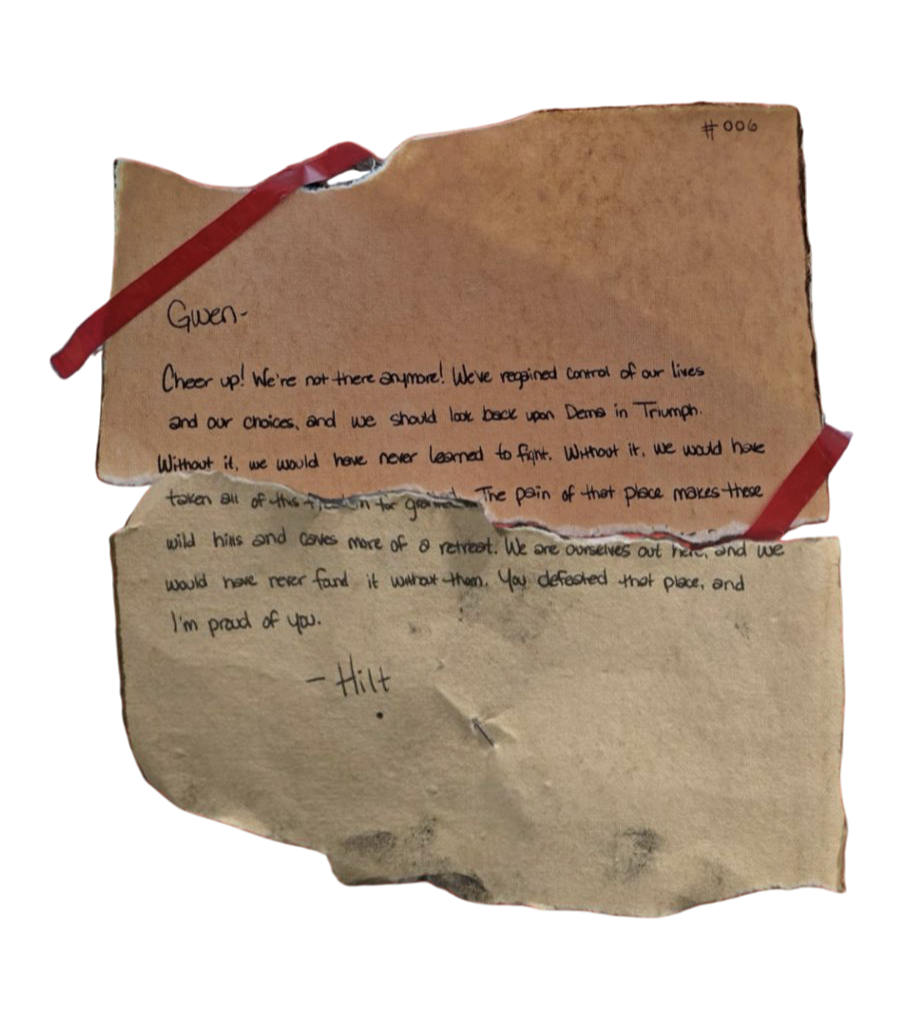 #006
Gwen-
Cheer up! We're not there anymore! We've regained control of our lives
and our choices, and we should look back upon Dema in Triumph.
Without it, we would have never learned to fight. Without it, we would have
taken all of this for The pain of that place makes these
wild hills and caves more of a retreat. We are ourselves out here, and we
would have never found it without them. You defeated that place, and
I'm proud of you.
- Hilt